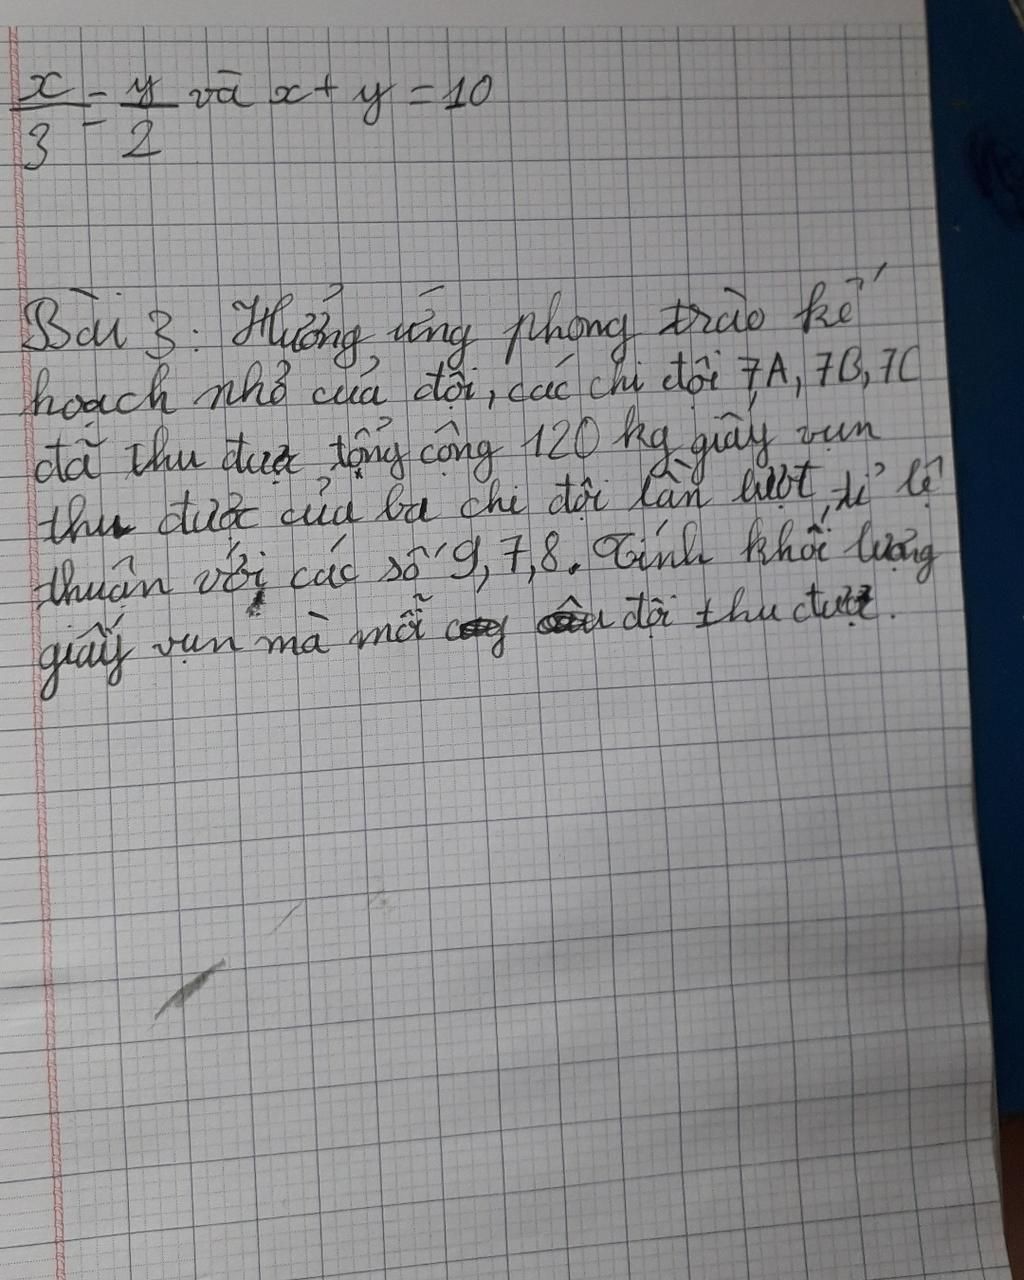 x/3 = y/2 và x + y = 10
Bài 3: Hưởng ứng phong trào kế
hoạch nhỏ của đội, các chi đội 7A, 7B, 7C
đã thu được tổng cộng 120 kg giấy vụn
thu được của ba chi đội lần lượt, tỉ lệ
thuận với các số 9, 7, 8. Tính khối lượng
giấy vụn mà mỗi đội thu được.